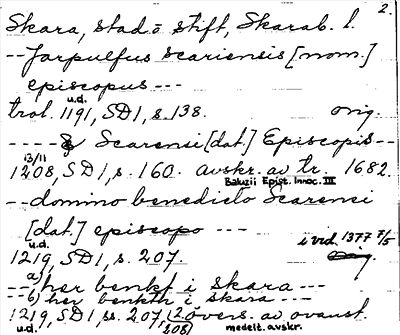 2.
Skara, stad o stift, Skarab. l.
-- Jarpulfus scariensis [nom.]
episcopus ---
u.d.
trol. 1191, SD1, s. 138. orig.
---- Scarensi [dat.] Episcopis --
13/11
1208, SD1, s. 160. avskr. av tr. 1682.
Baluzii Epist. Innoc. III
-- domino benedicto Scarensi
[dat.] episcopo --- i vid. 1377 7/5
u.d.
1219, SD1, s. 207.
a) -- her benkt i skara ---
-- b) her benkth i skara ---
1219, SD1, ss. 207, (2 övers. av ovanst.
u.d. 208) medelt. avskr.